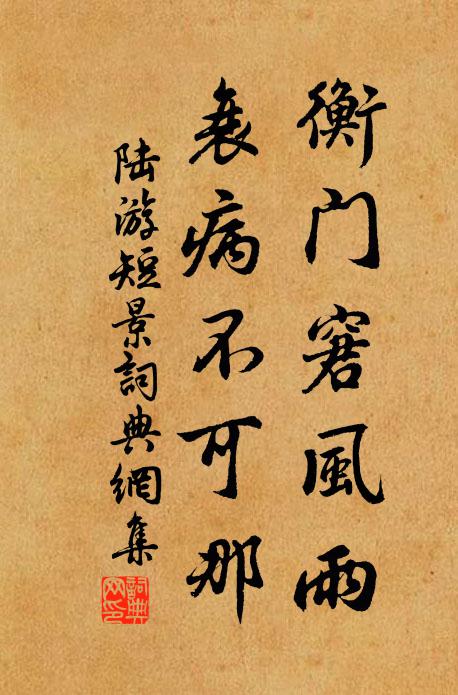 衡门窘風雨
衰病不可那
陆游短景詞典網集
詞典网印